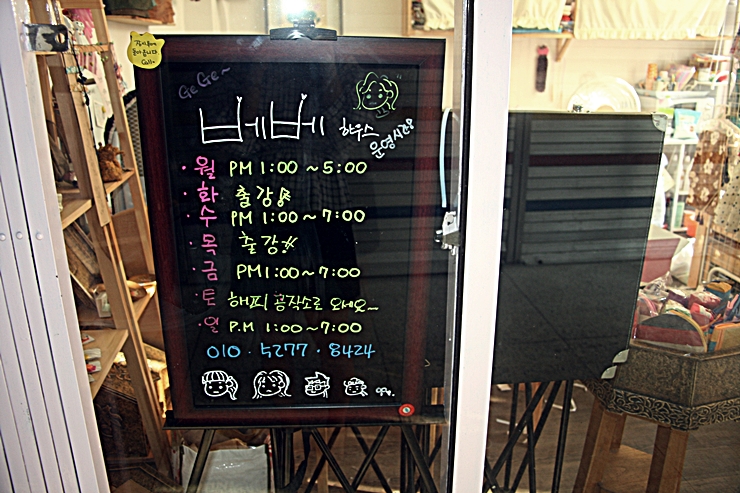 GeGe~
베베 하우스
운영시간
· 월 PM 1:00 ~ 5:00
· 화 출강
· 수 PM 1:00 ~ 7:00
· 목 출강
· 금 PM 1:00 ~ 7:00
· 토 해피 공작소로 오세요~
· 일 P.M 1:00 ~ 7:00
010 · 5277 · 8424